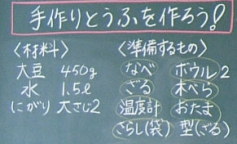 手作りとうふを作ろう!
〈材料〉
大豆 450g
水 1.5ℓ
にがり 大さじ2
〈準備するもの〉
なべ ボウル2
ざる 木べら
温度計 おたま
さらし(袋) 型(ざる)